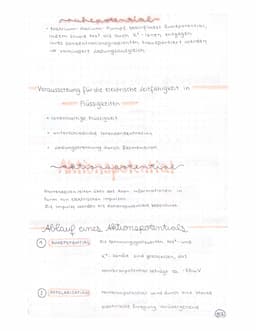 Ruhepotential
• Natrium-Kalium-Pumpe beeinflusst Ruhepotential,
indem sowohl Na⁺ als auch K⁺-Ionen entgegen
ihres Konzentrationsgradienten transportiert werden
→ verringert Ladungsausgleich
Voraussetzung für die elektrische Leitfähigkeit in
Flüssigkeiten
• ionenhaltige Flüssigkeit
• unterschiedliche Ionenkonzentration
• Ladungstrennung durch Biomembran
Aktionspotential
Nervenzellen leiten über das Axon Informationen in
Form von elektrischen Impulsen
Die Impulse werden als Aktionspotential bezeichnet
Ablauf eines Aktionspotentials
1 RUHEPOTENTIAL Die spannungsgesteuerten Na⁺ und
K⁺-Kanäle sind geschlossen, das
Membranpotential beträgt ca. -70mV
2 Membranpotential wird durch eine
elektrische Erregung